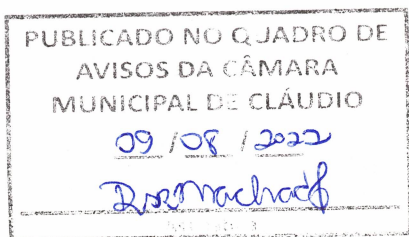 PUBLICADO NO QUADRO DE
AVISOS DA CÂMARA
MUNICIPAL DE CLÁUDIO
09 / 08 / 2022